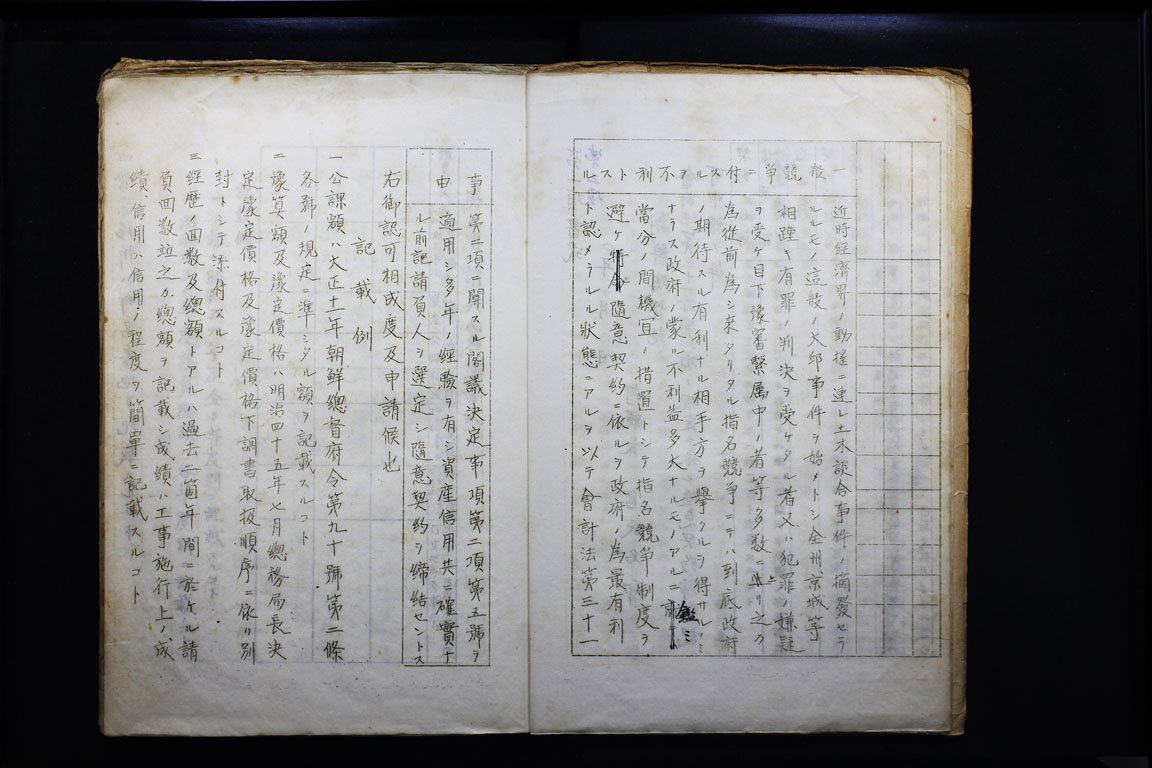 一般競争ニ付スルヲ不利トスル
近時経濟界ノ動揺ニ連レ土木談合事件ノ摘發セラ
ルルモノ這般ノ大邱事件ヲ始メトシ全州京城等
相踵キ有罪ノ判決ヲ受ケタル者又ハ犯罪ノ嫌疑
ヲ受ケ目下豫審繋属中ノ者等多数ニ上リ之カ
為從前為シ来タリタル指名競争ニテハ到底政府
ノ期待スル有利ナル相手方ヲ擧クルヲ得サルノミ
ナラス政府ノ蒙ル不利益多大ナルモノアルニ鑑ミ
當分ノ間機宜ノ措置トシテ指名競争制度ヲ
避ケ随意契約ニ依ルヲ政府ノ為最有利
ト認メラルル状態ニアルヲ以テ會計法第三十一
事由
第二項ニ関スル閣議決定事項第二項第五號ヲ
適用シ多年ノ経驗ヲ有シ資産信用共ニ確實ナ
ル前記請負人ヲ選定シ随意契約ヲ締結セントス
右御認可相成度及申請候也
記載例
一公課額ハ大正十一年朝鮮總督府令第九十號第二條
各號ノ規定ニ準シタル額ヲ記載スルコト
二豫算額及豫定價格ハ明治四十五年七月總務局長決
定豫定價格及豫定價格下調書取扱順序ニ依リ別
封トシテ添付スルコト
三経歴ノ回数及總額トアルハ過去二箇年間ニ於ケル請
負回数竝之カ總額ヲ記載シ成績ハ工事施行上ノ成
績、信用ハ信用ノ程度ヲ簡單ニ記載スルコト